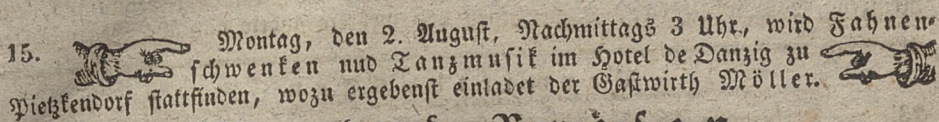 15. Montag, den 2. August, Nachmittags 3 Uhr, wird Fahnen-
schwenken nud Tanzmusik im Hotel de Danzig zu
Pietzkendorf stattfinden, wozu ergebenst einladet der Gastwirth Möller.